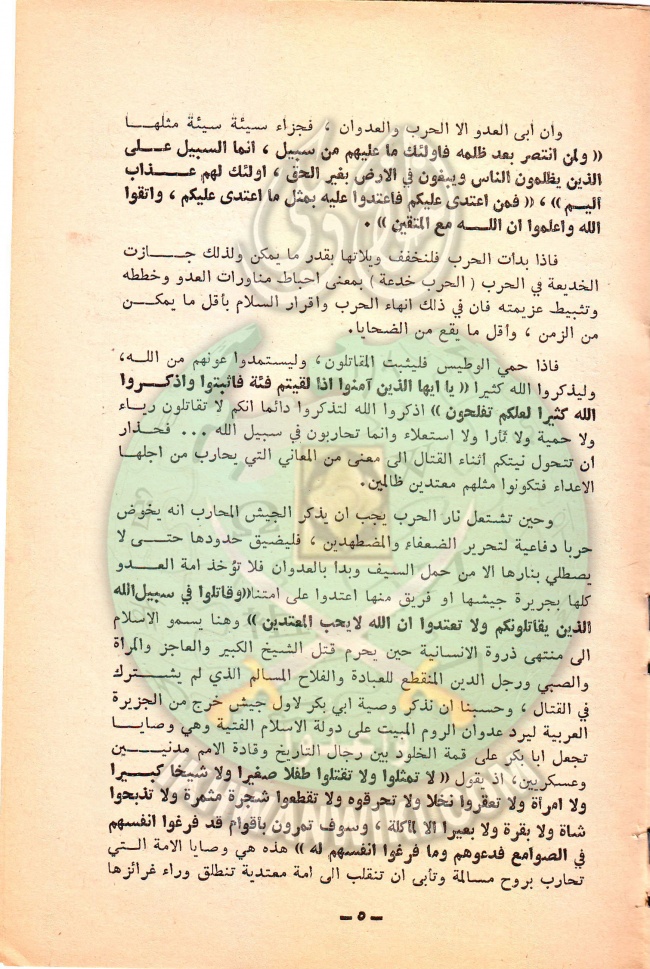 وان ابى العدو الا الحرب والعدوان ، فجزاء سيئة سيئة مثلهـا
(( ولمن انتصر بعد ظلمه فاولئك ما عليهم من سبيل ، انما السبيل عـلى
الذين يظلمون الناس ويبغون في الارض بغير الحق ، اولئك لهم عـذاب
اليـم )) ، (( فمن اعتدى عليكم فاعتدوا عليه بمثل ما اعتدى عليكم ، واتقوا
الله واعلموا ان اللـه مع المتقين )) .
فاذا بدات الحرب فلنخفف ويلاتها بقدر ما يمكن ولذلك جـازت
الخديعة في الحرب ( الحرب خدعة ) بمعنى احباط مناورات العدو وخططه
وتثبيط عزيمته فان في ذلك انهاء الحرب واقرار السلام بأقل ما يمكـن
من الزمن ، وأقل ما يقع من الضحايا.
فاذا حمي الوطيس فليثبت المقاتلون، وليستمدوا عونهم من اللـه،
وليذكروا الله كثيرا (( يا ايها الذين آمنوا اذا لقيتم فئة فاثبتوا واذكـروا
الله كثيرا لعلكم تفلحون )) اذكروا الله لتذكروا دائما انكم لا تقاتلون رياء
ولا حمية ولا ثأرا ولا استعلاء وانما تحاربون في سبيل الله ... فحـذار
ان تتحول نيتكم أثناء القتال الى معنى من المعاني التي يحارب من اجلهـا
الاعداء فتكونوا مثلهم معتدين ظالمين.
وحين تشتعل نار الحرب يجب ان يذكر الجيش المحارب انه يخوض
حربا دفاعية لتحرير الضعفاء والمضطهدين ، فليضيق حدودها حتـى لا
يصطلي بنارها الا من حمل السيف وبدا بالعدوان فلا تؤخذ امة العـدو
كلها بجريرة جيشها او فريق منها اعتدوا على امتنا((وقاتلوا في سبيل الله
الذين يقاتلونكم ولا تعتدوا ان الله لا يحب المعتدين )) وهنا يسمو الاسلام
الى منتهى ذروة الانسانية حين يحرم قتل الشيخ الكبير والعاجز والمرأة
والصبي ورجل الدين المنقطع للعبادة والفلاح المسالم الذي لم يشـترك
في القتال ، وحسبنا ان نذكر وصية ابي بكر لاول جيش خرج من الجزيرة
العربية ليرد عدوان الروم المبيت على دولة الاسلام الفتية وهي وصايـا
تجعل ابا بكر على قمة الخلود بين رجال التاريخ وقادة الامم مدنيـين
وعسكريين، اذ يقول (( لا تمثلوا ولا تقتلوا طفلا صغيرا ولا شيخا كبـيرا
ولا امرأة ولا تعقروا نخلا ولا تحرقوه ولا تقطعوا شجرة مثمرة ولا تذبحوا
شاة ولا بقرة ولا بعيرا الا لمأكلة ، وسوف تمرون بأقوام قد فرغوا انفسهم
في الصوامع فدعوهم وما فرغوا انفسهم له )) هذه هي وصايا الامة التـي
تحارب بروح مسالمة وتأبى ان تنقلب الى امة معتدية تنطلق وراء غرائزها
ـ ٥ ـ